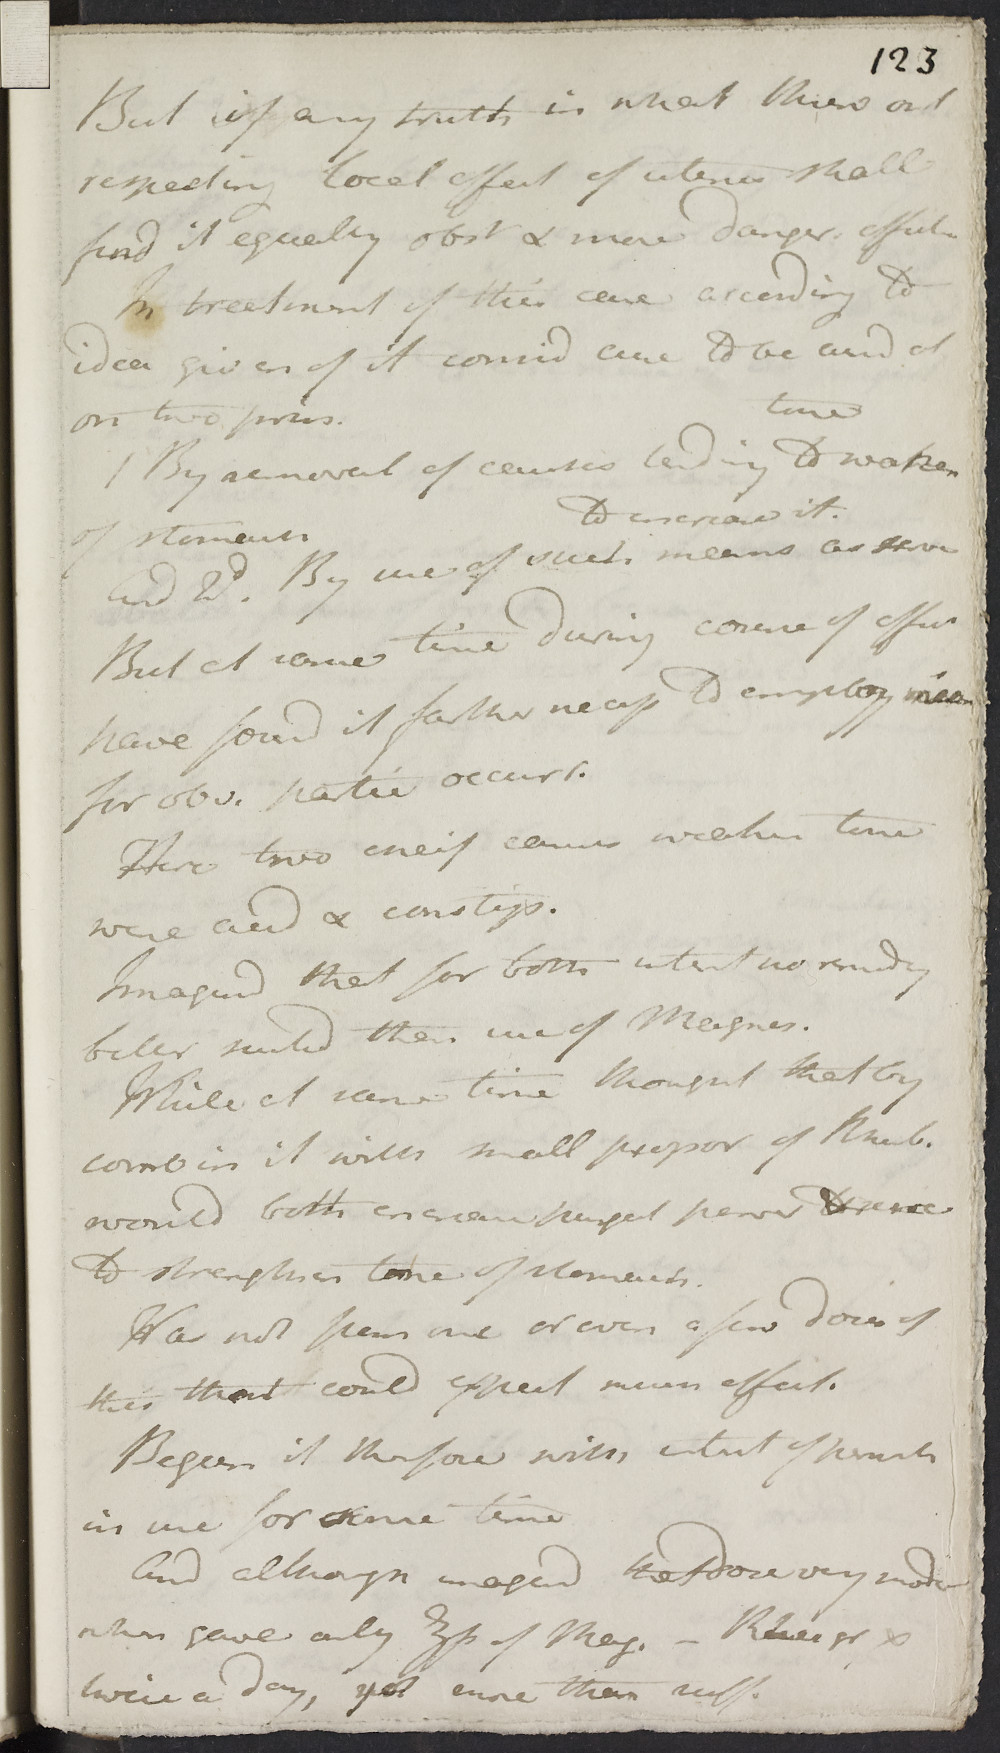 123
But if any truth in what throw out
respecting local affect of uterus shall
find it equally obst & more danger. affectn
In treatment of this case according to
idea given of it consid cure to be aimd at
on two prins.
1 By removal of causes tending to weaken tone
of stomach
And 2d. By use of such means as serve to increase it.
But at same time during course of affect
have found it farther necess to employ means
for obv. partic occurr.
Here two chief causes weaken tone
were acid & constip.
Imagind that for both intent no remedy
better suited than use of Magnes.
While at same time thought that by
combin it with small propor of Rhub.
would both increase purgat power & serve
to strengthen tone of stomach.
Was not from one or even a few doses of
this that could expect much effect.
Began it therefore with intent of persist
in use for some time
And although imagind that dose very moder
when gave only ʒss of Mag. – Rhei gr x
twice a day, yet more than suff.